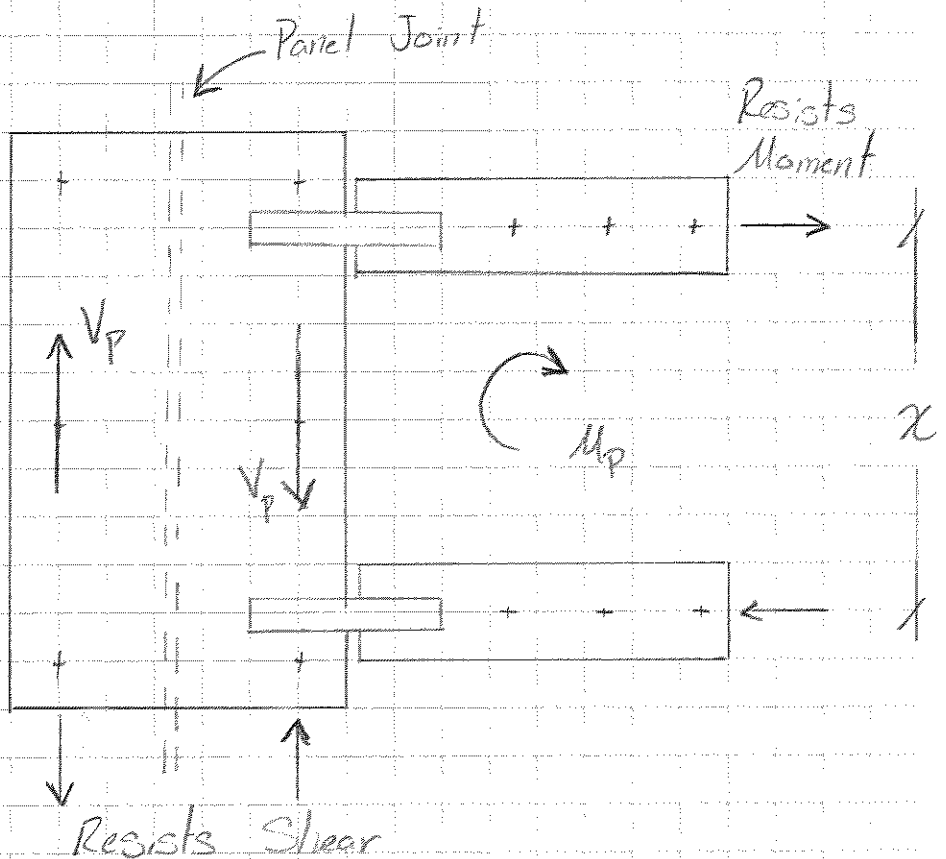 Panel Joint
Resists
Moment
Vp
Vp
Mp
x
Resists Shear